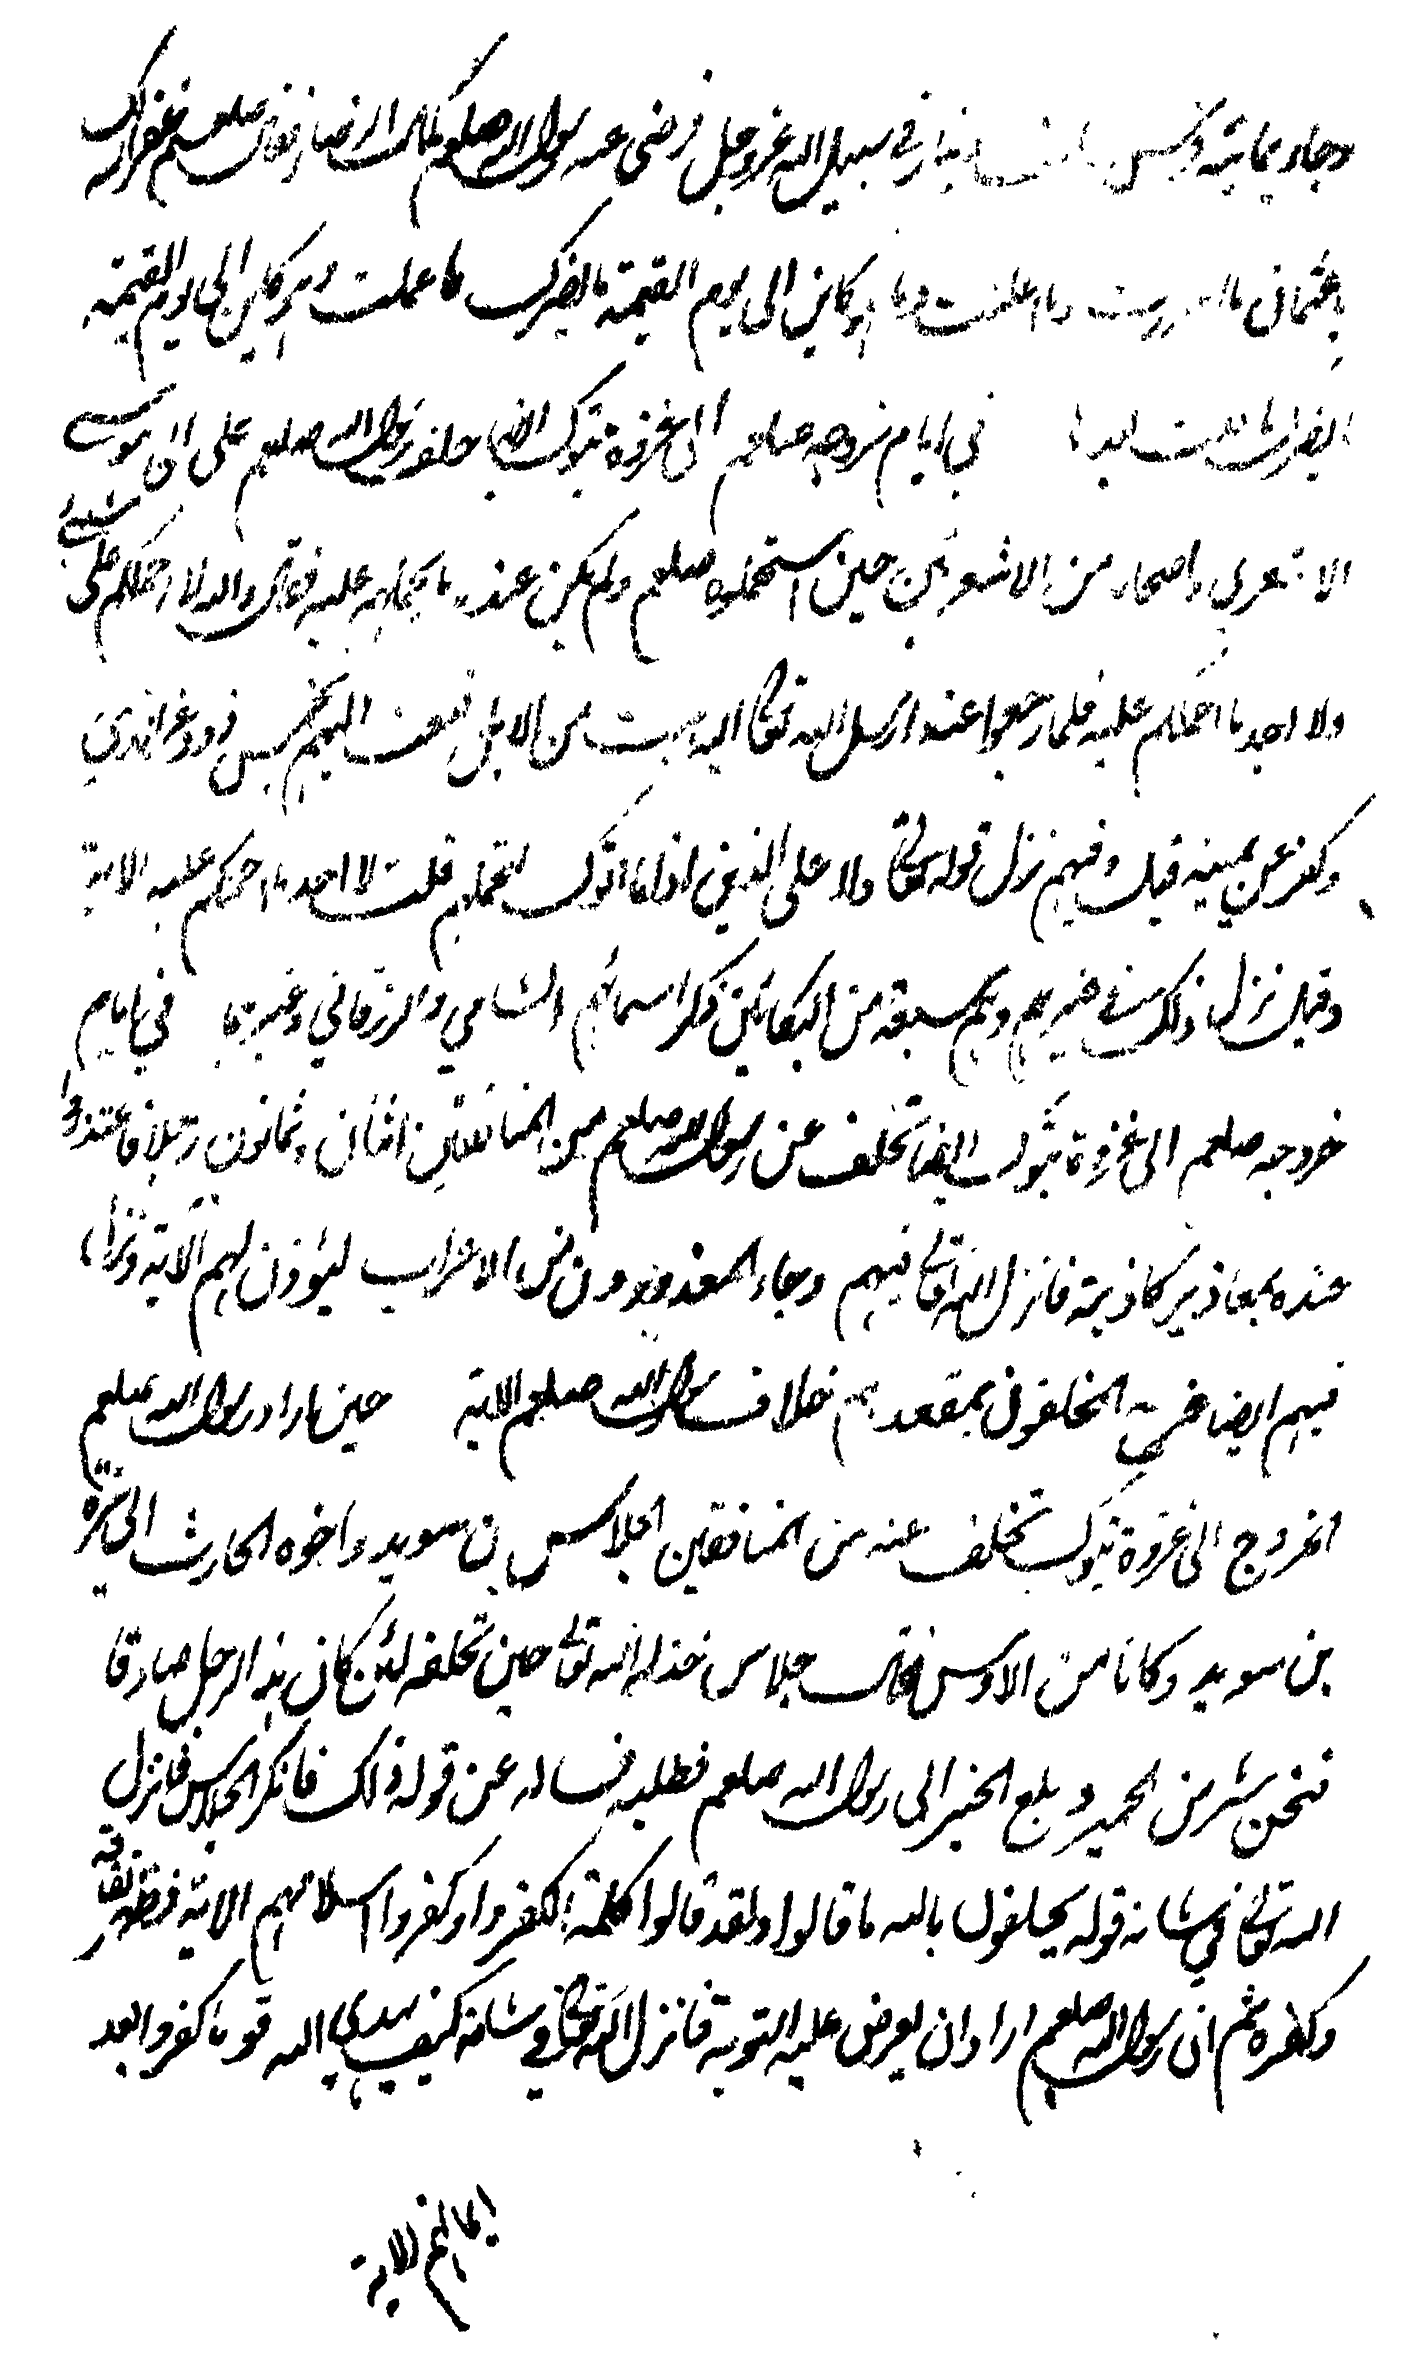 وجاء بمائة وخمس دينار في سبيل الله عزوجل فرضى عنه رسول الله صلعم فقال صلعم غفر الله لك
يا عثمان ما اسررت وما اعلنت وما هو كاين الى يوم القيمة ما يضرك ما عملت وهو كاين الى يوم القيمة
ايضا في ايام خروجه صلعم الى غزوة تبوك ايضا حلف رسول الله صلعم على ابي موسى
الاشعري واصحابه من الاشعريين حين استحملوه صلعم ولم يكن عنده ما يحملهم عليه فقال والله لا احملكم على شيئ
ولا اجد ما احملكم عليه فلما رجعوا عنه ارسل الله تعالى اليه من الابل فبعث اليهم بخمس ذود غر الذري
وكفر عن يمينه قيل وفيهم نزل قوله تعالى ولا على الذين اذا ما اتوك لتحملهم قلت لا اجد ما احملكم عليه الاية
وقيل نزل ذلك في غيرهم وهم سبعة من البكائين ذكر اسمائهم الشامي والزرقاني وغيرهما في ايام
خروجه صلعم الى غزوة تبوك ايضا تخلف عن رسول الله صلعم من المنافقين اثنان وثمانون رجلا فاعتذروا
عنده بمعاذير كاذبة فانزل الله تعالى فيهم وجاء المعذرون من الاعراب ليؤذن لهم الآية ونزل
فيهم ايضا فرح المخلفون بمقعدهم خلاف رسول الله صلعم الاية حين اراد رسول الله صلعم
الخروج الى غزوة تبوك تخلف عنه من المنافقين الجلاس بن سويد واخوه الحارث
بن سويد وكانا من الاوس فقال جلاس خذله الله تعالى حين تخلفه لئن كان هذا الرجل صادقا
فنحن شر من الحمير وبلغ الخبر الى رسول الله صلعم فطلبه فساله عن قوله ذلك فانكر الجلاس فانزل
الله تعالى في شانه قوله يحلفون بالله ما قالوا ولقد قالوا كلمة الكفر وكفروا اسلامهم الاية فظهر نفاقه
وكفره ثم ان رسول الله صلعم اراد ان يعرض عليه التوبة فانزل الله تعالى في شانه كيف يهدي الله قوما كفروا بعد
ايمانهم الاية